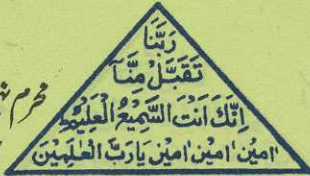 رَبَّنَا
تَقَبَّلْ مِنَّآ
اِنَّكَ اَنْتَ السَّمِيْعُ الْعَلِيْمُ
اٰمِيْن اٰمِيْن اٰمِيْن يَارَبَّ الْعٰلَمِيْنَ
محرم